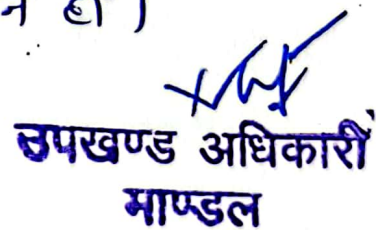 न हो।
उपखण्ड अधिकारी
माण्डल